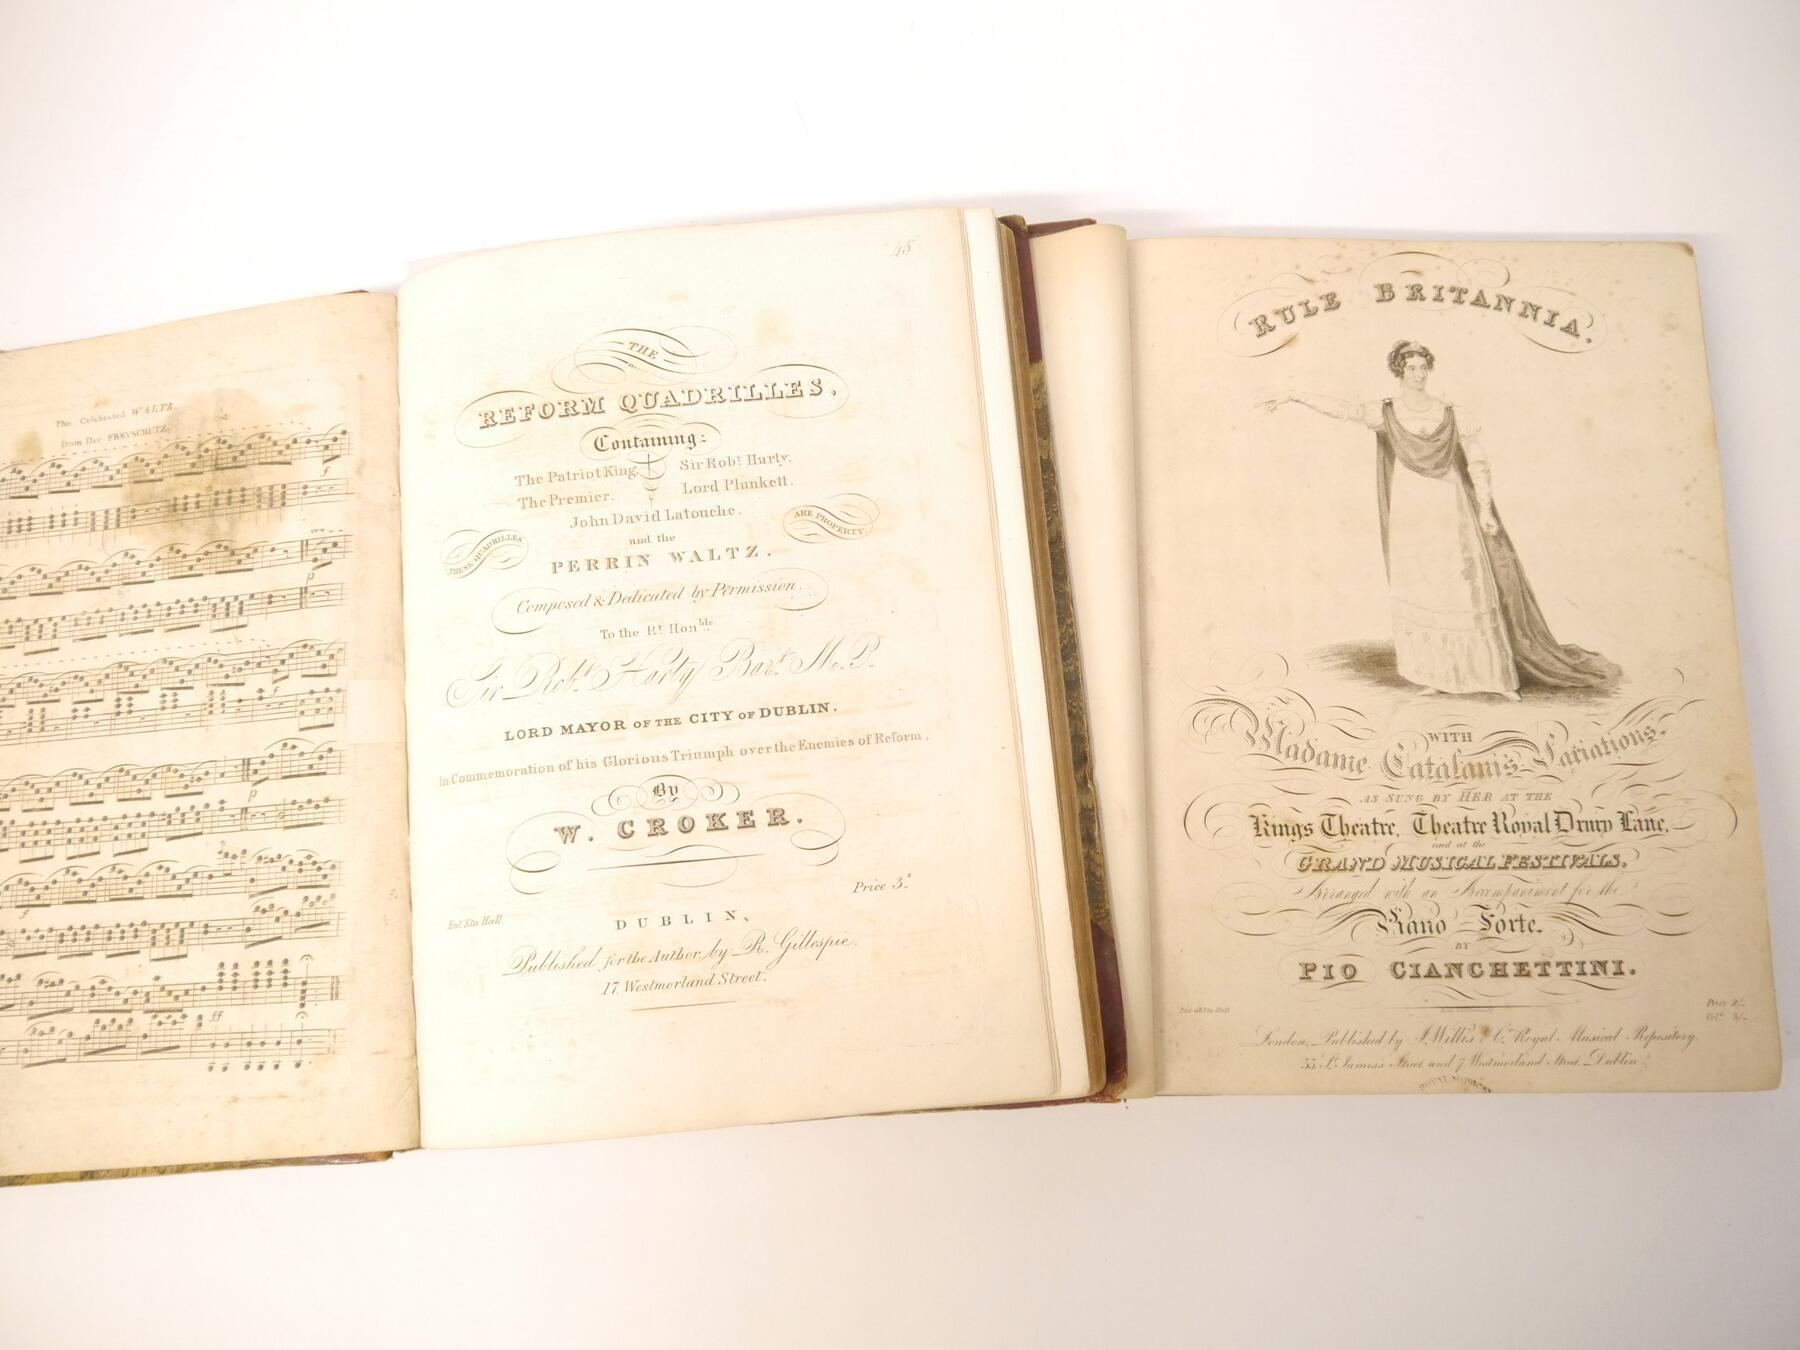 The Celebrated WALTZ,
from Der FREYSCHUTZ,
f
p
f
p
f
ff
45
THE
REFORM QUADRILLES,
Containing:
The Patriot King. Sir Robt. Harty.
The Premier. Lord Plunkett.
John David Latouche.
THESE QUADRILLES
ARE PROPERTY.
and the
PERRIN WALTZ.
Composed & Dedicated by Permission.
To the Rt. Honble
Sir Robt. Harty Bart. M.P.
LORD MAYOR OF THE CITY OF DUBLIN.
In Commemoration of his Glorious Triumph over the Enemies of Reform,
By
W. CROKER.
Price 3s.
Ent Sta. Hall
DUBLIN,
Published for the Author, by R. Gillespie.
17, Westmorland Street.
RULE BRITANNIA,
WITH
Madame Catalani's Variations,
AS SUNG BY HER AT THE
Kings Theatre, Theatre Royal Drury Lane,
and at the
GRAND MUSICAL FESTIVALS,
Arranged with an Accompaniment for the
Piano Forte,
BY
PIO CIANCHETTINI.
Ent. at Sta. Hall
Price 2/-
Col.d 3/-
London, Published by I. Willis & Co. Royal Musical Repository
55 St. James's Street and 7 Westmorland Street Dublin